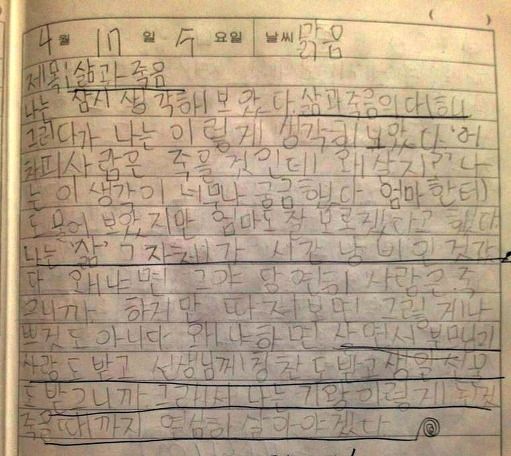 4월 17일 수요일 날씨 맑음
제목: 삶과 죽음
나는 잠시 생각해 보았다 삶과죽음이다
그러다가 나는 이렇게 생각해 보았다 '어
차피 사람은 죽을 것인데 왜 살지?' 나
는 이 생각이 너무나 궁금했다 엄마한테
도 물어 보았지만 엄마도 잘 모르겠다고 했다
나는 '삶' 그 자체가 시간 낭비인 것 같
다 왜냐면 그야 당연히 사람은 죽
으니까 하지만 따져보면 그렇게 나
쁜 것도 아니다 왜냐하면 살면서 부모님의
사랑도 받고 선생님께 칭찬도 받고 생일 선물
도 받으니까 그래서 나는 기왕 이렇게 된거
죽을때까지 열심히 살아야겠다